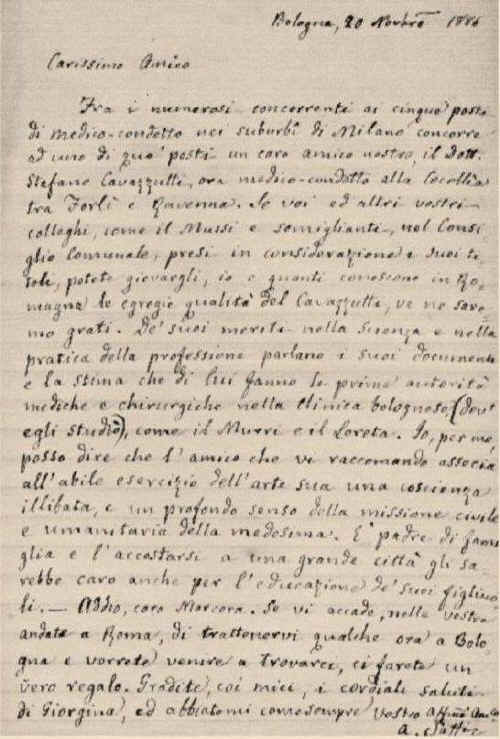 Bologna, 20 Novbre 1886
Carissimo Amico
Fra i numerosi concorrenti ai cinque posti
di medico-condotto nei suburbi di Milano concorre
ad uno di que' posti un caro amico nostro, il Dott.
Stefano Cavazzutti, ora medico-condotto alla Cocollia
tra Forlì e Ravenna. Se voi ed altri vostri
colleghi, come il Mussi e somiglianti, nel Consi
glio Comunale, presi in considerazione i suoi ti
toli, potete giovargli, io e quanti conoscono in Ro-
magna le egregie qualità del Cavazzutti, ve ne sare
mo grati. De' suoi meriti nella scienza e nella
pratica della professione parlano i suoi documenti
e la stima che di lui fanno le prime autorità
mediche e chirurgiche nella Clinica bolognese (dov'
egli studiò), come il Murri e il Loreta. Io, per me,
posso dire che l'amico che vi raccomando associa
all'abile esercizio dell'arte sua una coscienza
illibata, e un profondo senso della missione civile
e umanitaria della medesima. E' padre di fami
glia e l'accostarsi a una grande città gli sa-
rebbe caro anche per l'educazione de' suoi figliuo
li. — Addio, caro Marcora. Se vi accade, nelle vostre
andate a Roma, di trattenervi qualche ora a Bolo
gna e vorrete venire a trovarci, ci farete un
vero regalo. Gradite, coi miei, i cordiali saluti
di Giorgina, ed abbiatemi come sempre vostro affmo Amico
A. Saffi